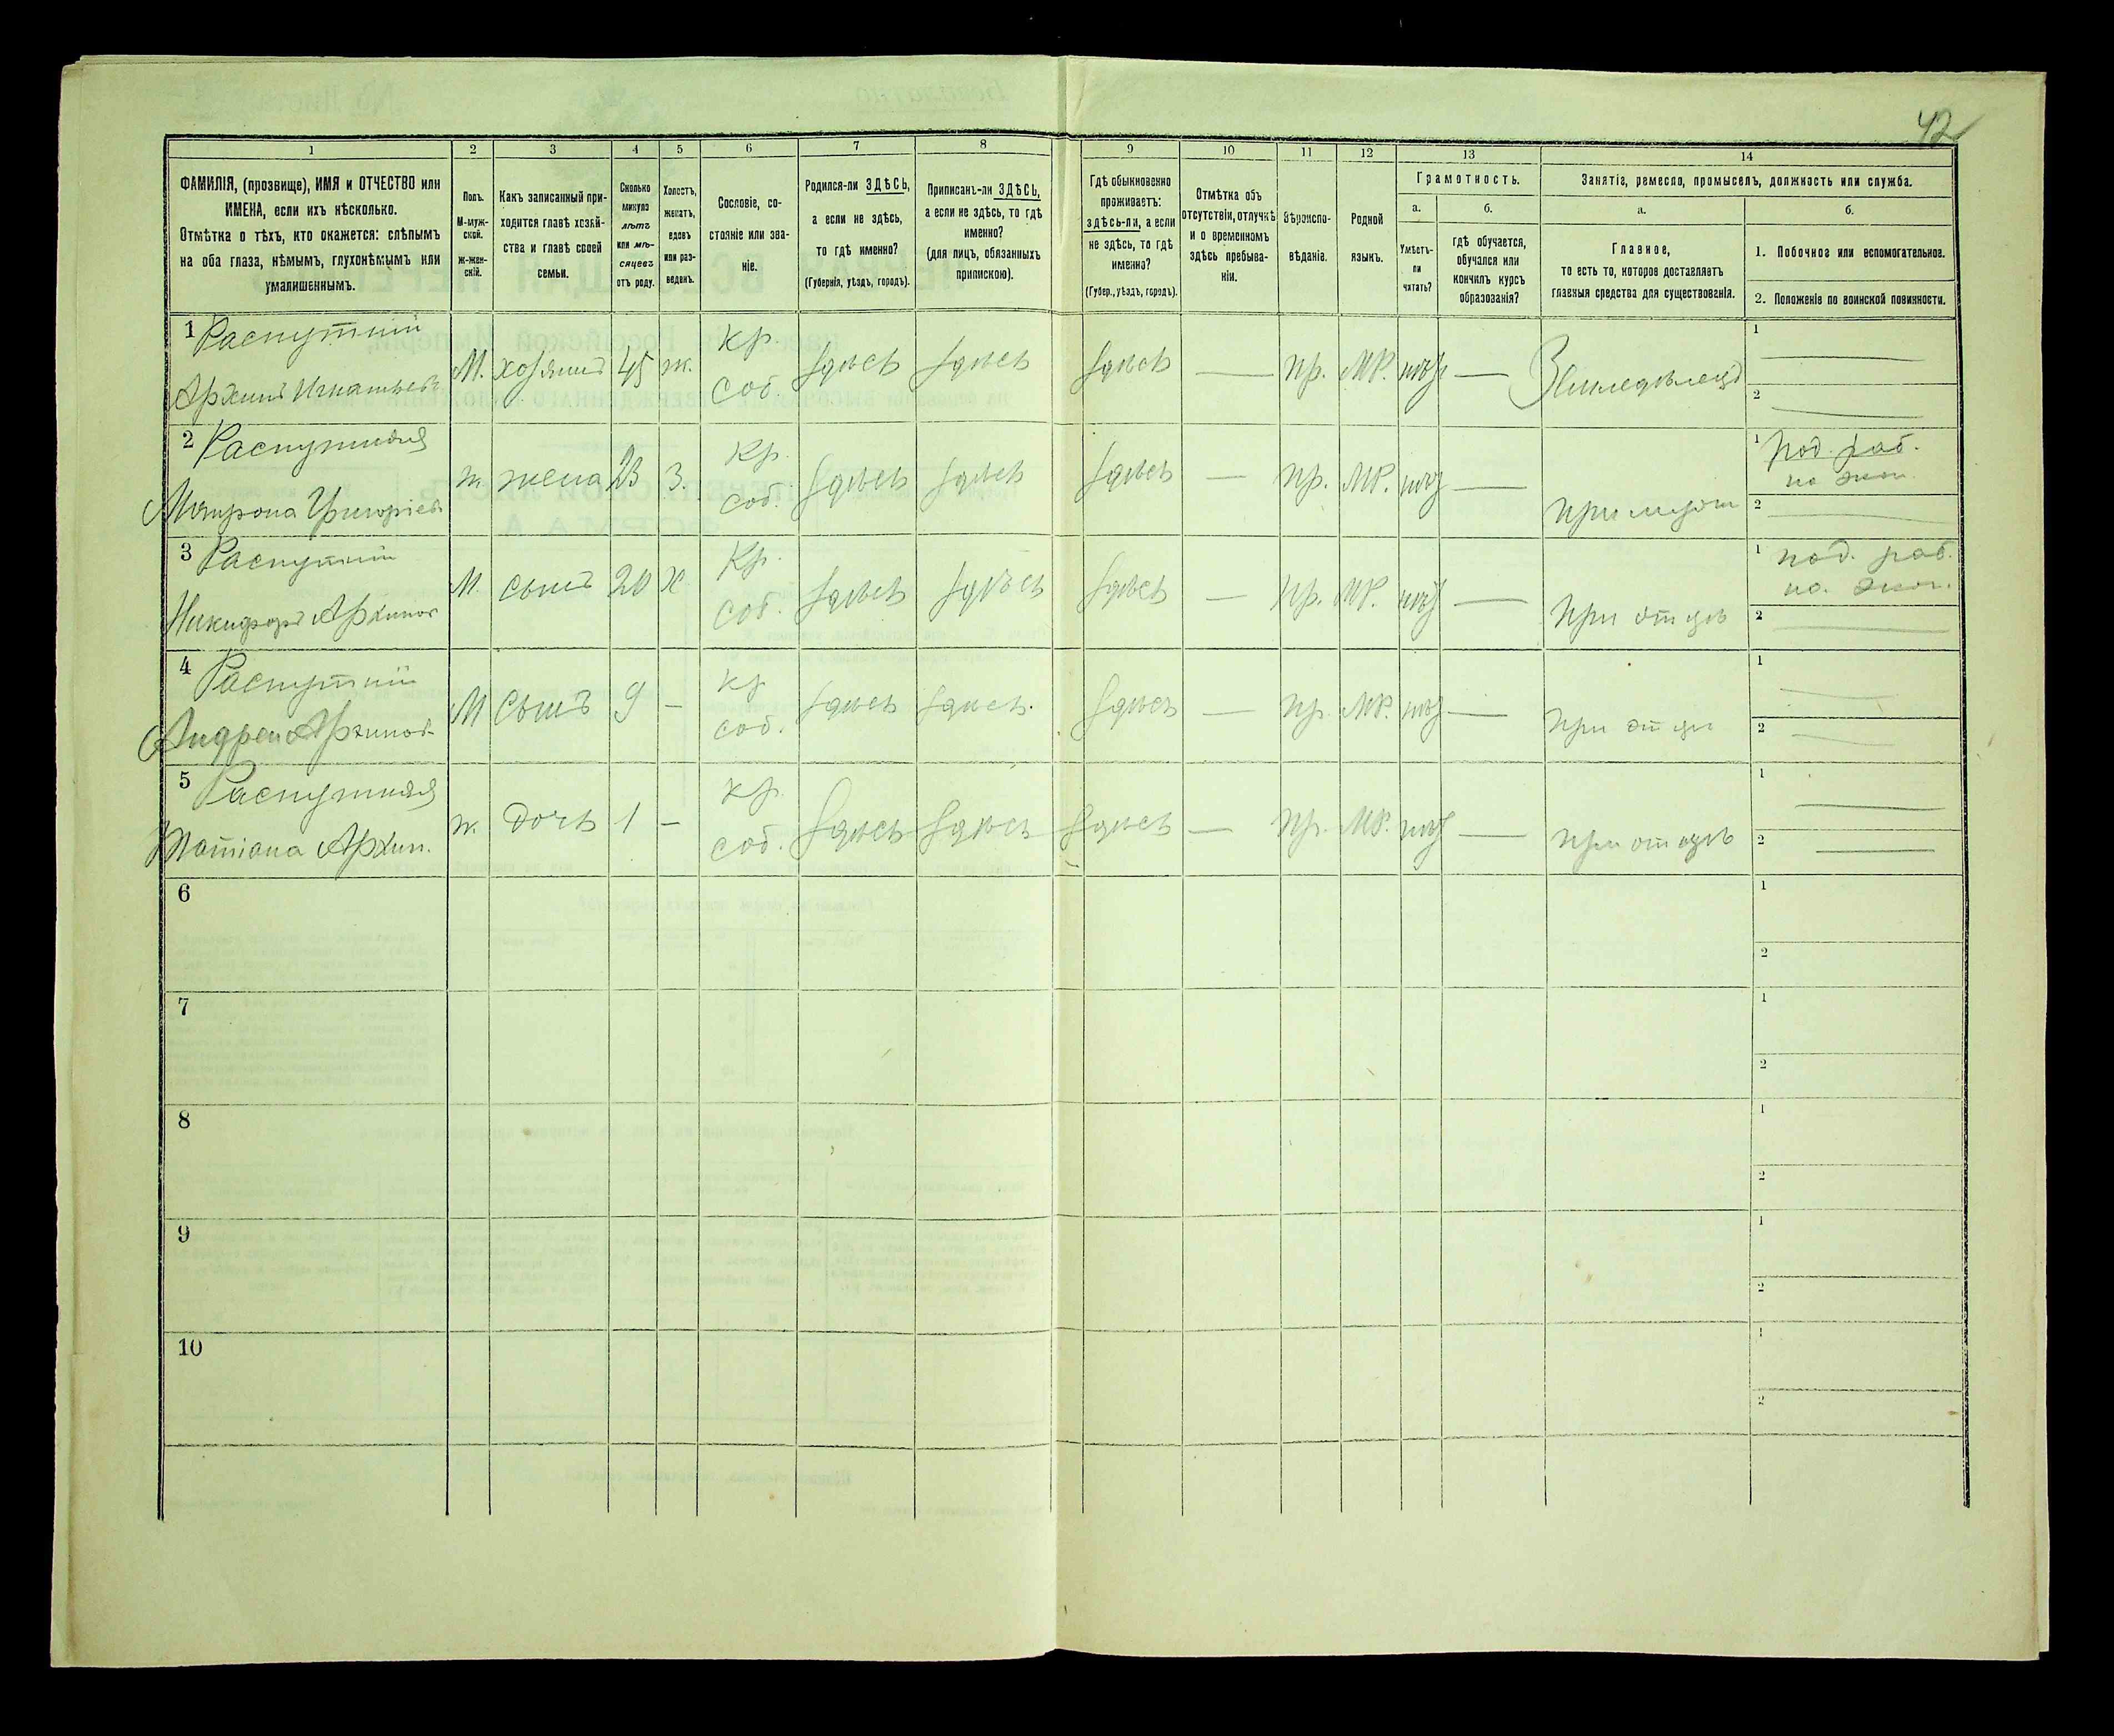 42
1 2 3 4 5 6 7 8 9 10 11 12 13 14
ФАМИЛІЯ, (прозвище), ИМЯ и ОТЧЕСТВО или
ИМЕНА, если ихъ нѣсколько.
Отмѣтка о тѣхъ, кто окажется: слѣпымъ
на оба глаза, нѣмымъ, глухонѣмымъ или
умалишеннымъ.
Полъ.
М-муж-
ской.
Ж-жен-
скій.
Какъ записанный при-
ходится главѣ хозяй-
ства и главѣ своей
семьи.
Сколько
минуло
лѣтъ
или мѣ-
сяцевъ
отъ роду.
Холостъ,
женатъ,
вдовъ
или раз-
веденъ.
Сословіе, со-
стояніе или зва-
ніе.
Родился-ли ЗДѢСЬ,
а если не здѣсь,
то гдѣ именно?
(Губернія, уѣздъ, городъ).
Приписанъ-ли ЗДѢСЬ,
а если не здѣсь, то гдѣ
именно?
(для лицъ, обязанныхъ
припискою).
Гдѣ обыкновенно
проживаетъ:
здѣсь-ли, а если
не здѣсь, то гдѣ
именно?
(Губер., уѣздъ, городъ).
Отмѣтка объ
отсутствіи, отлучкѣ
и о временномъ
здѣсь пребыва-
ніи.
Вѣроиспо-
вѣданіе.
Родной
языкъ.
Грамотность.
а.
Умѣетъ-
ли
читать?
б.
гдѣ обучается,
обучался или
кончилъ курсъ
образованія?
Занятіе, ремесло, промыселъ, должность или служба.
а.
Главное,
то есть то, которое доставляетъ
главныя средства для существованія.
б.
1. Побочное или вспомогательное.
2. Положеніе по воинской повинности.
1 Распутній
Архипъ Игнатьевъ
М. хозяинъ 45 ж. Кр. соб. здѣсь здѣсь здѣсь — пр. МР. нѣтъ — Земледѣлецъ
1 —
2 —
2 Распутняя
Матрона Григоріев
ж. жена 23 З. Кр. соб. здѣсь здѣсь здѣсь — пр. МР. нѣтъ — При мужѣ
1 под. раб.
по экон.
2 —
3 Распутній
Никифоръ Архипов
М. сынъ 20 Х Кр. соб. здѣсь здѣсь здѣсь — пр. МР. нѣтъ — При отцѣ
1 под. раб.
по. экон.
2 —
4 Распутній
Андрей Архипов
М сынъ 9 — кр соб. здѣсь здѣсь. здѣсь — пр. МР. нѣтъ — при отцѣ
1 —
2 —
5 Распутняя
Татіана Архип.
ж. дочь 1 — кр. соб. здѣсь здѣсь здѣсь — пр. МР. нѣтъ — при отцѣ
1 —
2 —
6
1
2
7
1
2
8
1
2
9
1
2
10
1
2